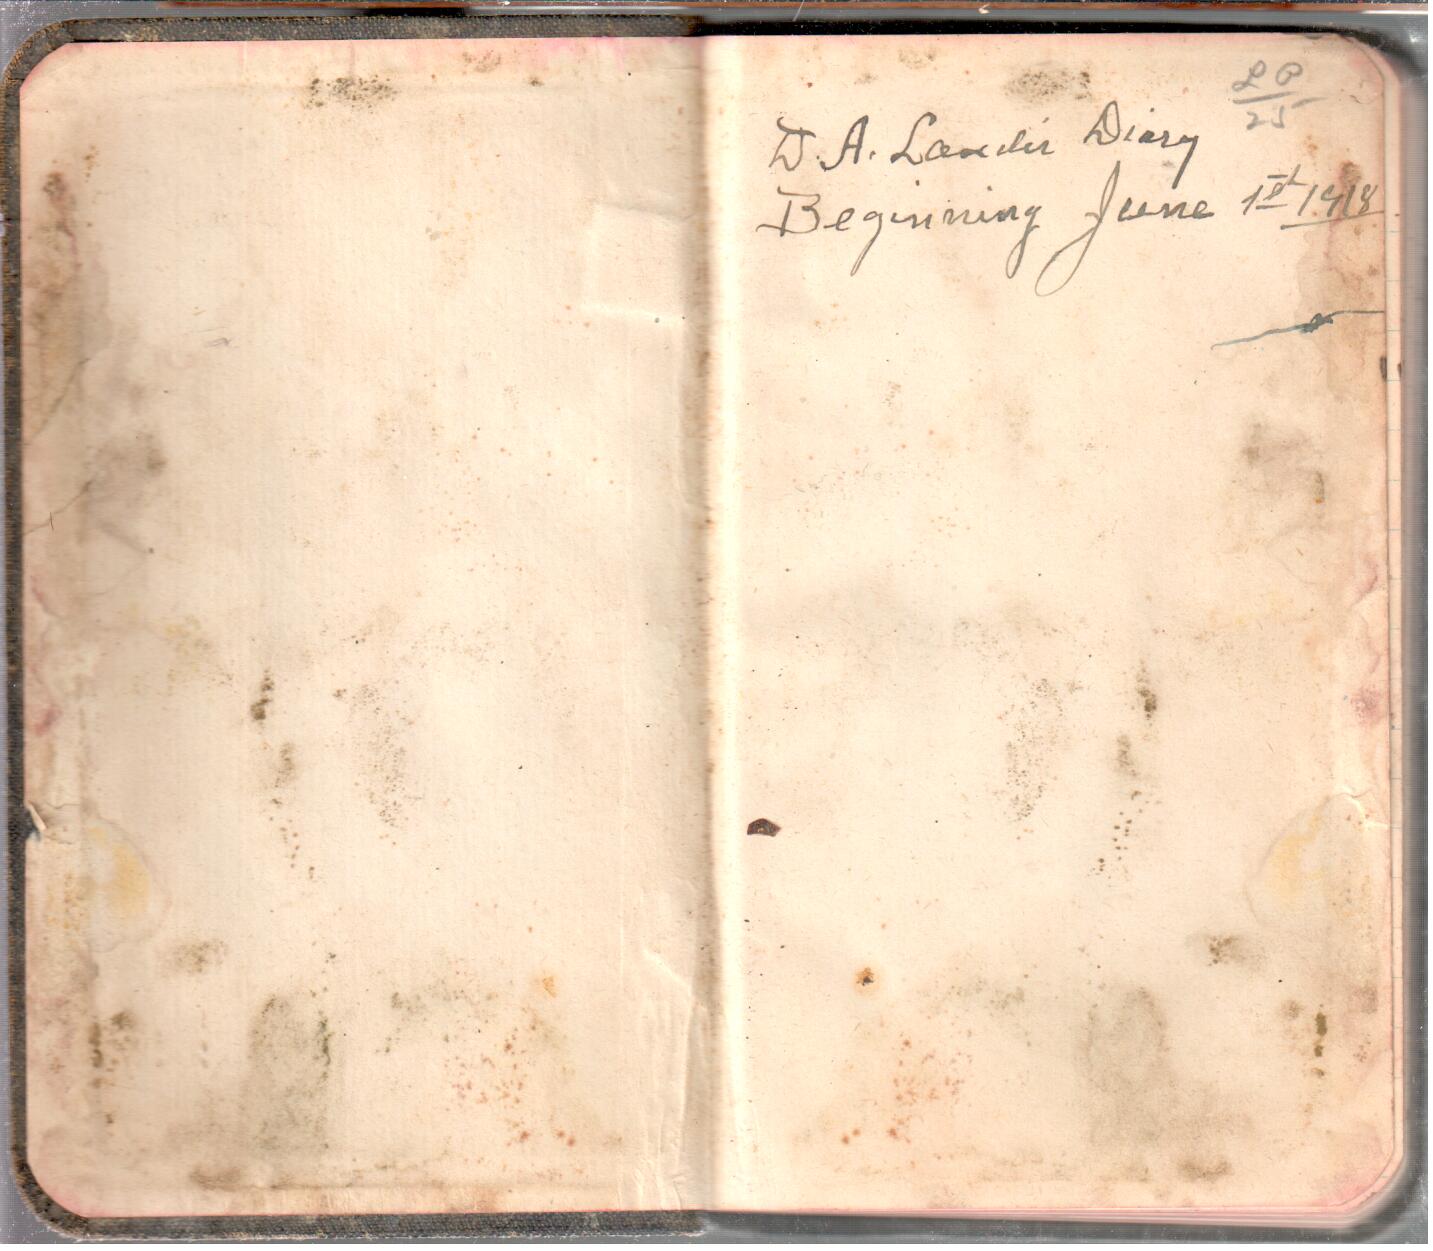 L P
25
D. A. Diary
Beginning June 1st 1918